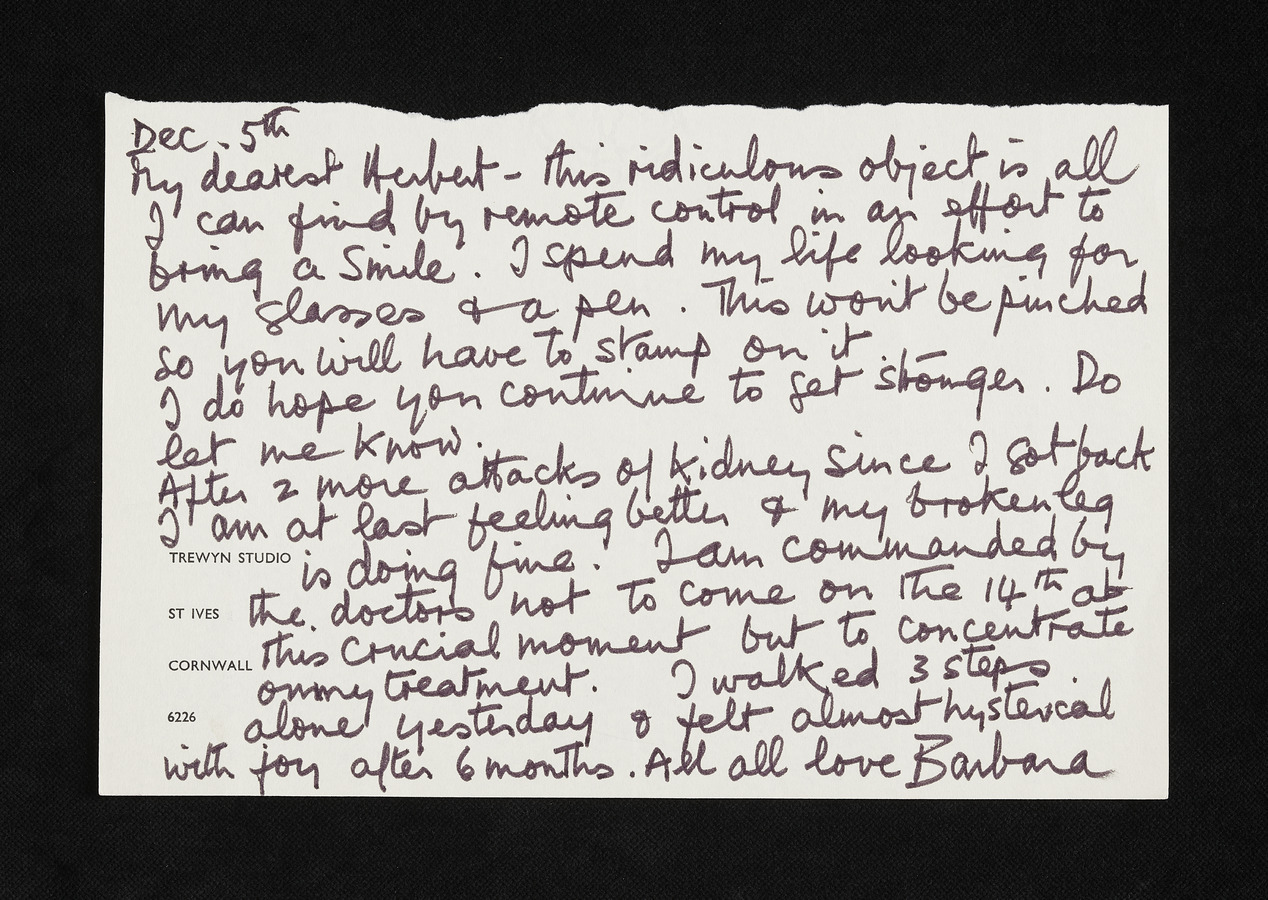 Dec. 5th
My dearest Herbert - this ridiculous object is all
I can find by remote control in an effort to
bring a smile. I spend my life looking for
my glasses & a pen. This won't be pinched
so you will have to stamp on it
I do hope you continue to get stronger. Do
let me know.
After 2 more attacks of kidney since I got back
I am at last feeling better & my broken leg
TREWYN STUDIO is doing fine. I am commanded by
ST IVES the doctors not to come on the 14th at
this crucial moment but to concentrate
CORNWALL on my treatment. I walked 3 steps
6226 alone yesterday & felt almost hysterical
with joy after 6 months. All all love Barbara